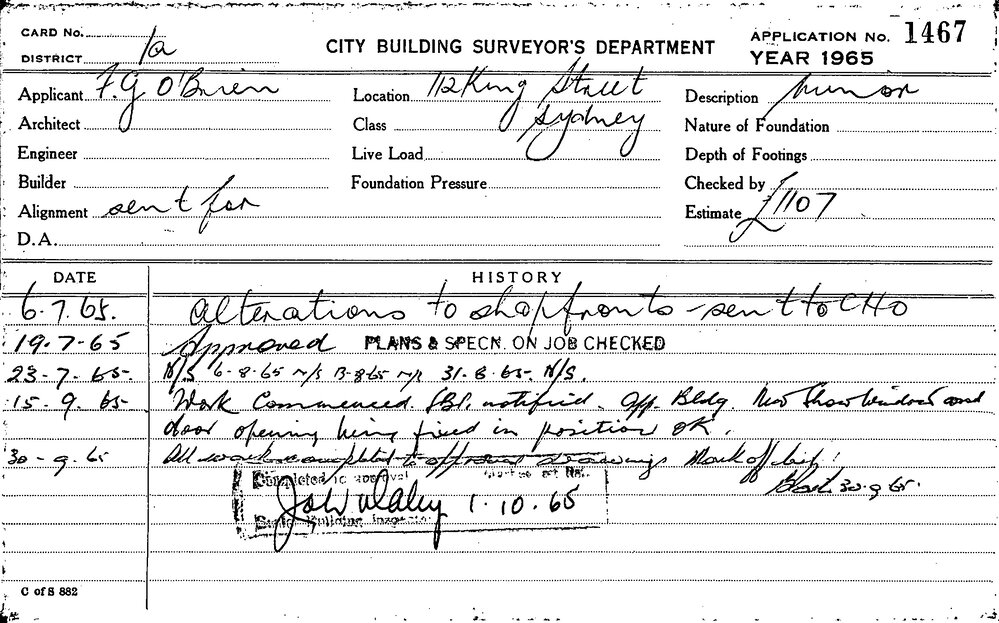 CARD No.
DISTRICT 1a
CITY BUILDING SURVEYOR'S DEPARTMENT
APPLICATION No. 1467
YEAR 1965
Applicant F. G O'Brien
Location 112 King Street
Sydney
Description Minor
Architect
Class
Nature of Foundation
Engineer
Live Load
Depth of Footings
Builder
Foundation Pressure
Checked by
Alignment sent for
Estimate £1107
D.A.
DATE HISTORY
6.7.65. Alterations to shopfronts - sent to CHO
19.7-65 Approved PLANS & SPECN. ON JOB CHECKED
23-7.65- N/S 6-8-65 N/S 13-8-65 N/S 31-8-65- N/S.
15.9.65- Work Commenced. notified. Off. Bldg. New Show Window and
door opening being fixed in position OK.
30-9.65 All work completed to approved drawings Mark off
30-9-65.
Completed to approval
John Daley 1.10.65
Senior Building Inspector
C of S 882